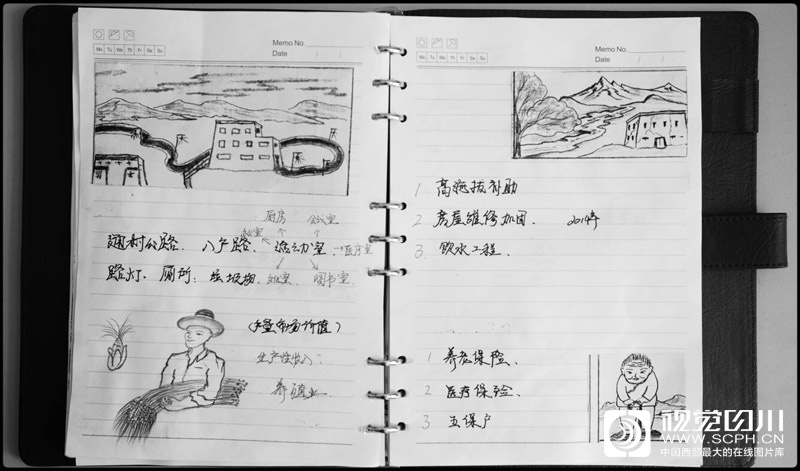 Memo No.
Mo Tu We Th Fr Sa Su
Date / /
厨房 会议室
通村公路、入户路、活动室、→医疗室
路灯、厕所、垃圾池、 图书室
(产量市场价值)
生产性收入:
养殖业
Memo No.
Mo Tu We Th Fr Sa Su
Date / /
1 高海拔补助
2 房屋维修加固、 2014年
3 饮水工程、
1 养老保险、
2 医疗保险、
3 五保户
视觉四川
WWW.SCPH.CN
中国西部最大的在线图片库